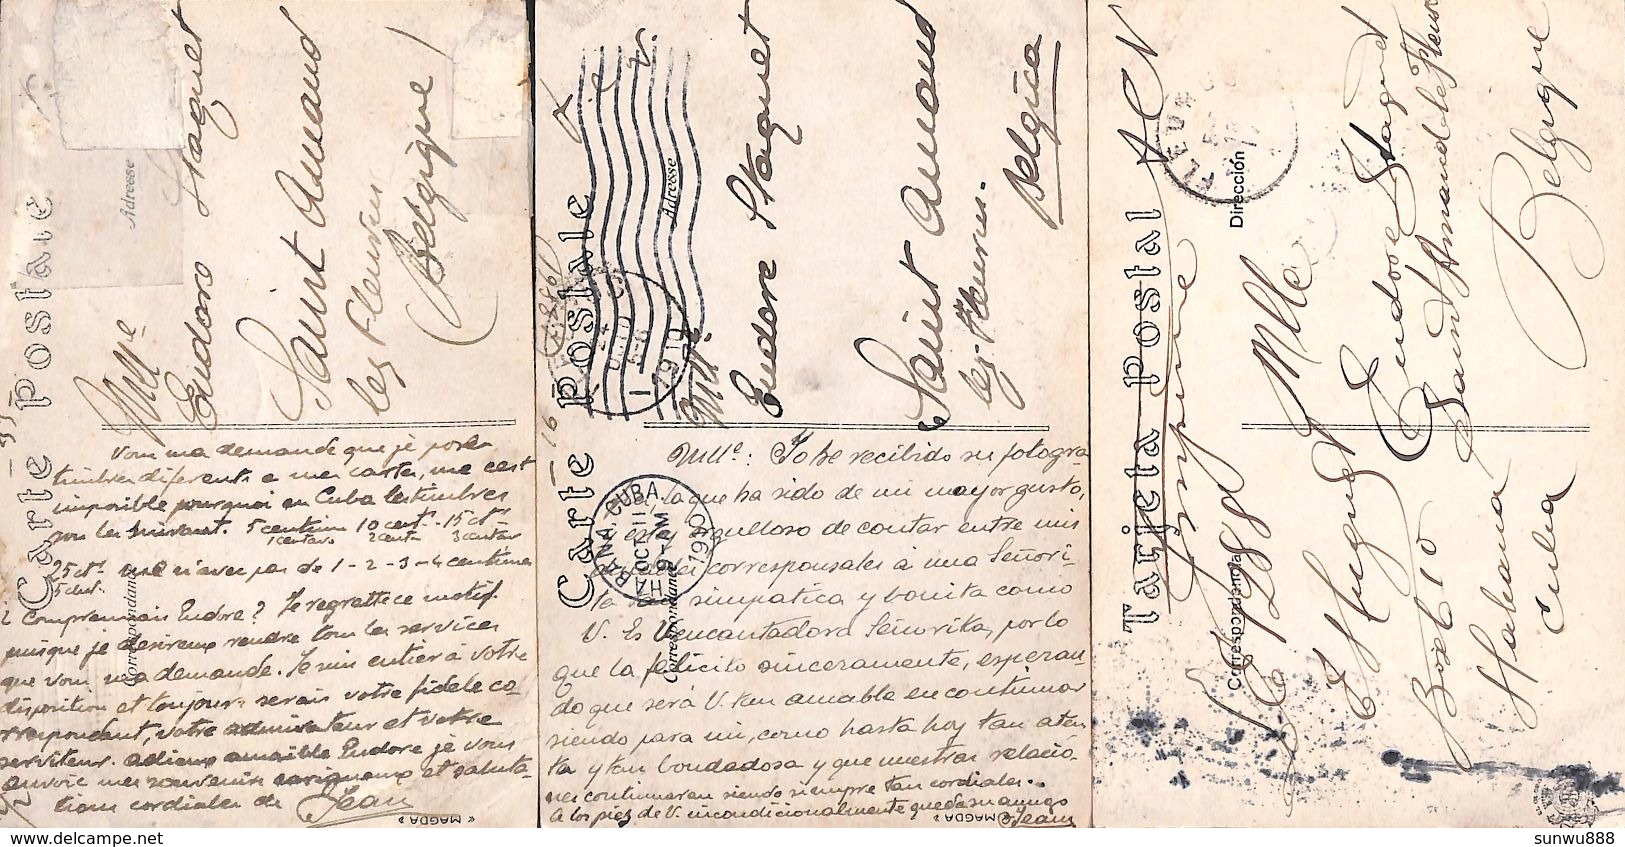 Carte Postale
Adresse
Mlle
Eudore Staquet
Saint Amand
lez Fleurus
Belgique
Correspondance
Vous ma demande que je poser
timbres diferents a mes cartes, me c'est
imposible pourquoi en Cuba les timbres
son les suivant. 5 centimes 10 cent. 15 cts
1 centavo 2 centa 3 centav
25 cts. et n'avez pas de 1-2-3-4 centimes
5 cent.
¿ Comprennais Eudore? Je regrette ce motif
puisque je desirerez rendre tous les services
que vous ma demande. Je suis entier à votre
disposition et toujours serais votre fidele co
rrespondant, votre admirateur et votre
serviteur. adieux amaible Eudore je vous
anvoie mes souvenirs et saluta
tions cordiales de Jean
« MAGDA »
Carte Postale
Adresse
Mlle
Eudore Staquet
Saint Amand
lez-Fleurus.
Belgica
1910
HABANA, CUBA.
OCT 11
9 - PM
1910
Correspondance
Mlle: Yo he recibido su fotogra-
fia la que ha sido de mi mayor gusto,
estoy orgulloso de contar entre mis
corresponsales à una Señori-
ta tan simpatica y bonita como
V. Es V. encantadora Señorita, por lo
que la felicito sinceramente, esperan-
do que será V. tan amable en continuar
siendo para mi, como hasta hoy tan aten
ta y tan bondadosa y que nuestras relacio-
nes continuaran siendo siempre tan cordiales..
A los piez de V. incondicionalmente queda su amigo
Jean
« MAGDA »
Tarjeta Postal
Dirección
Correspondencia
FLEURUS
Mlle
Eudore Staquet
Saint Amand lez Fleurus
Belgique
E Huguet
Box 610
Habana
Cuba
sunwu888